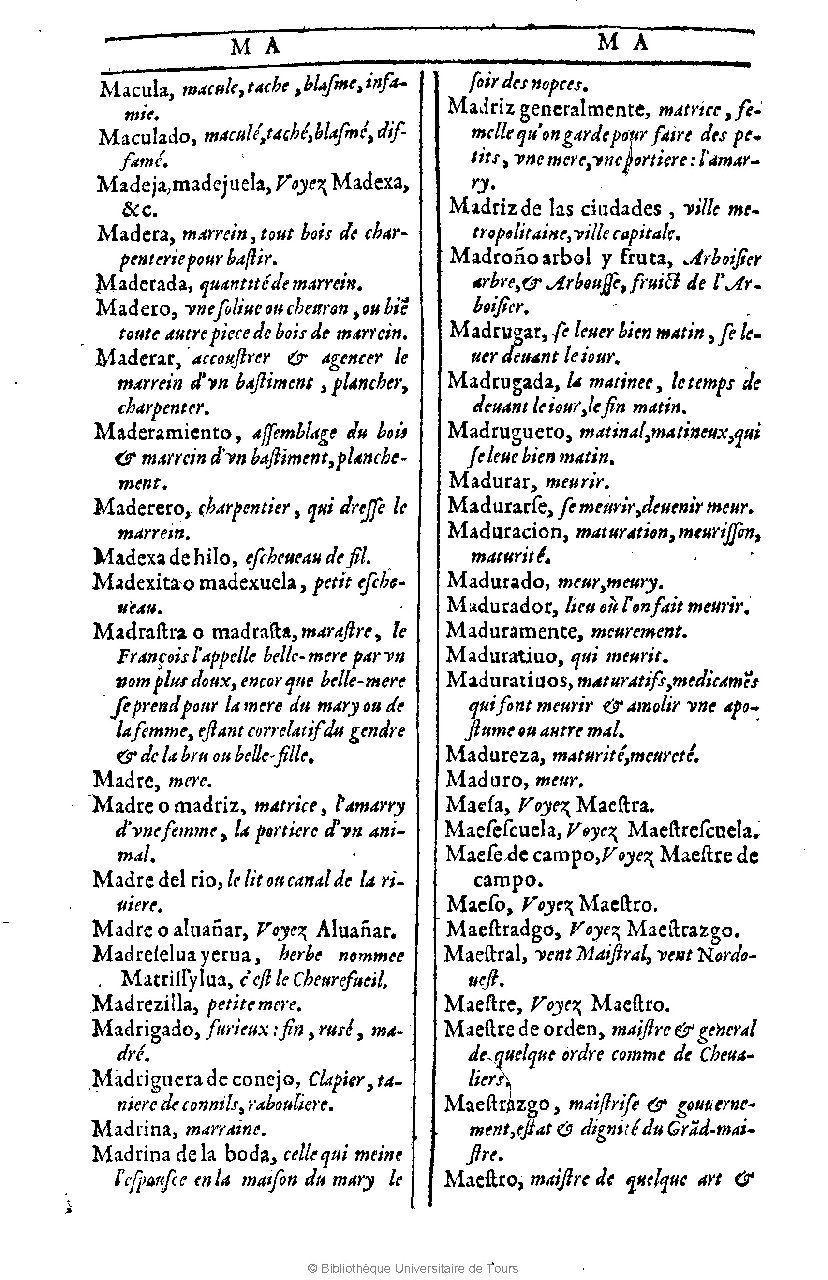 M A
Macula, macule, tache, blaſme, infa-
mie.
Maculado, maculé, taché, blaſmé, dif-
famé.
Madeja, madejuela, Voyez Madexa,
&c.
Madera, marrein, tout bois de char-
penterie pour baſtir.
Maderada, quantité de marrein.
Madero, vne ſoliue ou cheuron, ou biē
toute autre piece de bois de marrein.
Maderar, accouſtrer & agencer le
marrein d'vn baſtiment, plancher,
charpenter.
Maderamiento, aſſemblage du bois
& marrein d'vn baſtiment, planche-
ment.
Maderero, charpentier, qui dreſſe le
marrein.
Madexa de hilo, eſcheueau de fil.
Madexita o madexuela, petit eſche-
ueau.
Madraſtra o madraſta, maraſtre, le
François l'appelle belle-mere par vn
nom plus doux, encor que belle-mere
ſe prend pour la mere du mary ou de
la femme, eſtant correlatif du gendre
& de la bru ou belle-fille.
Madre, mere.
Madre o madriz, matrice, l'amarry
d'vne femme, la portiere d'vn ani-
mal.
Madre del rio, le lit ou canal de la ri-
uiere.
Madre o aluañar, Voyez Aluañar.
Madreſelua yerua, herbe nommee
Matriſſylua, c'eſt le Cheurefueil.
Madrezilla, petite mere.
Madrigado, furieux : fin, ruſé, ma-
dré.
Madriguera de conejo, Clapier, ta-
niere de connils, rabouliere.
Madrina, marraine.
Madrina de la boda, celle qui meine
l'eſpouſee en la maiſon du mary le
M A
ſoir des nopces.
Madriz generalmente, matrice, fe-
melle qu'on garde pour faire des pe-
tits, vne mere, vne portiere : l'amar-
ry.
Madriz de las ciudades, ville me-
tropolitaine, ville capitale.
Madroño arbol y fruta, Arboiſier
arbre, & Arbouſſe, fruict de l'Ar-
boiſier.
Madrugar, ſe leuer bien matin, ſe le-
uer deuant le iour.
Madrugada, la matinee, le temps de
deuant le iour, le fin matin.
Madruguero, matinal, matineux, qui
ſe leue bien matin.
Madurar, meurir.
Madurarſe, ſe meurir, deuenir meur.
Maduracion, maturation, meuriſſon,
maturité.
Madurado, meur, meury.
Madurador, lieu où l'on fait meurir.
Maduramente, meurement.
Maduratiuo, qui meurit.
Maduratiuos, maturatifs, medicamēs
qui font meurir & amolir vne apo-
ſtume ou autre mal.
Madureza, maturité, meureté.
Maduro, meur.
Maeſa, Voyez Maeſtra.
Maeſeſcuela, Voyez Maeſtreſcuela.
Maeſe de campo, Voyez Maeſtre de
campo.
Maeſo, Voyez Maeſtro.
Maeſtradgo, Voyez Maeſtrazgo.
Maeſtral, vent Maiſtral, vent Nordo-
ueſt.
Maeſtre, Voyez Maeſtro.
Maeſtre de orden, maiſtre & general
de quelque ordre comme de Cheua-
liers.
Maeſtrazgo, maiſtriſe & gouuerne-
ment, eſtat & dignité du Grād-mai-
ſtre.
Maeſtro, maiſtre de quelque art &
© Bibliothèque Universitaire de Tours